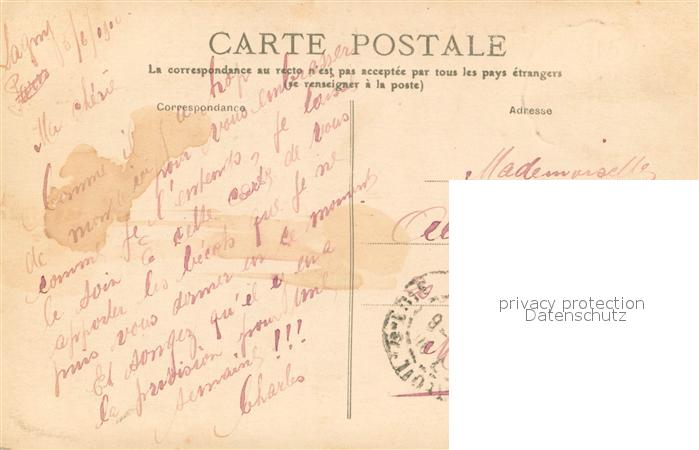 Lagny
CARTE POSTALE
La correspondance au recto n'est pas acceptée par tous les pays étrangers
(se renseigner à la poste)
Correspondance
Adresse
Ma chérie
Comme il y a trop
de monde ici pour vous embrasser
comme je l'entends, je laisse
le soin à cette carte de vous
apporter les bécots que je ne
puis vous donner en ce moment
Et songez qu'il y en a
la provision pour une
semaine!!!
Charles
Mademoiselle
privacy protection
Datenschutz